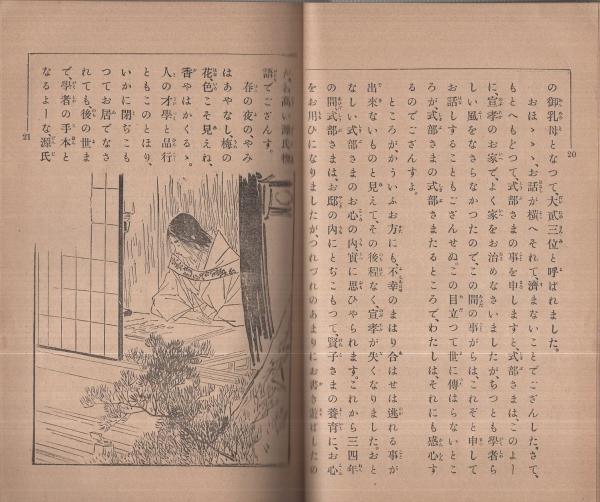 の御乳母となつて、大貳三位と呼ばれました。
おほゝゝゝ、お話が横へそれて、濟まないことでござんした。さて、
もとへもどつて、式部さまの事を申しますと、式部さまは、このよー
に、宣孝のお家で、よく家をお治めなさいましたが、ちつとも學者ら
しい風をなさらなかつたので、この間の事がらは、これぞと申して
お話しすることもござんせぬ。この目立つて世に傳はらないとこ
ろが、式部さまの式部さまたるところで、わたしは、それにも感心す
るのでござんすよ。
ところが、かういふお方にも、不幸のまはり合はせは逃れる事が
出來ないものと見えて、その後程なく、宣孝が失くなりました。おと
なしい式部さまのお心の内、實に思ひやられます。これから三四年
の間、式部さまは、お邸の内にとぢこもつて、賢子さまの養育に、お心
をお用ひになりましたが、つれづれのあまりにお書き遊ばしたの
20
が、名高い源氏物
語でござんす。
春の夜の、やみ
はあやなし、梅の
花、色こそ見えね、
香やはかくるゝ。
人の才學と品行
ともこのとほり、
いかに閉ぢこも
つてお居でなさ
れても、後の世ま
で、學者の手本と
なるよーな、源氏
21